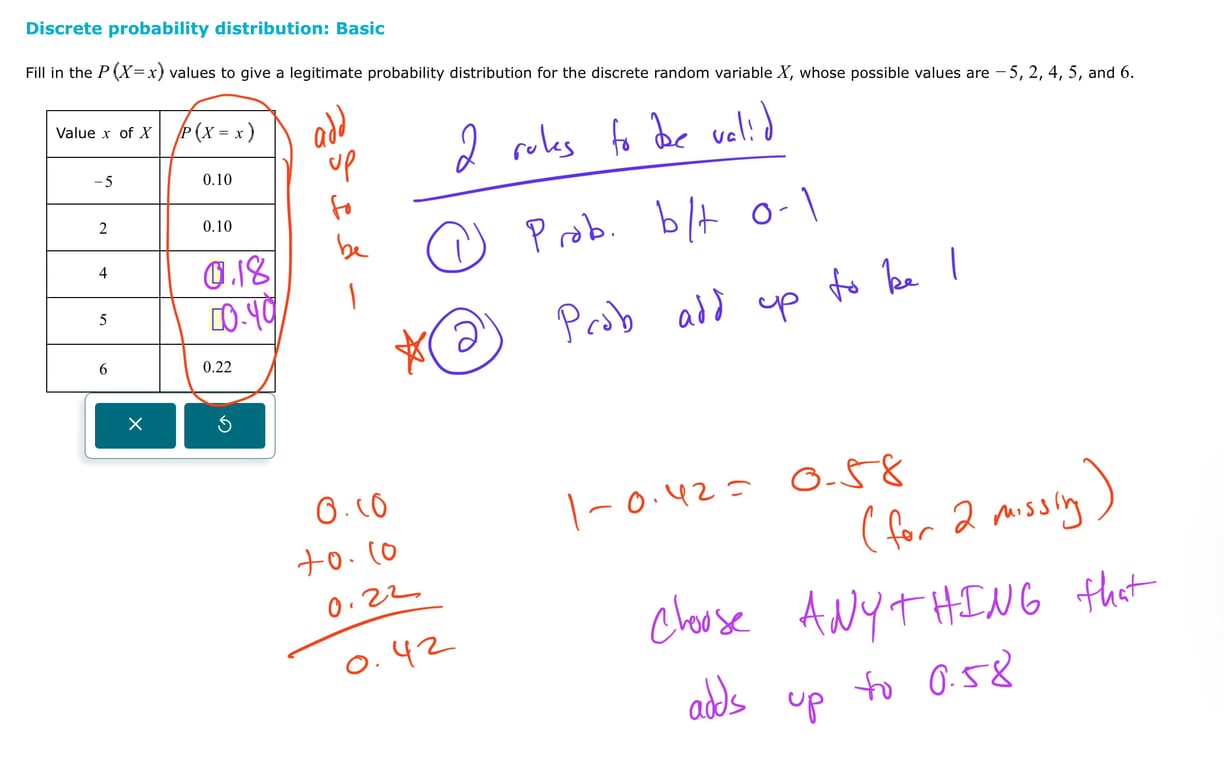 Discrete probability distribution: Basic
Fill in the P(X=x) values to give a legitimate probability distribution for the discrete random variable X, whose possible values are −5, 2, 4, 5, and 6.
Value x of X P(X = x)
−5 0.10
2 0.10
4 0.18
5 0.40
6 0.22
add
up
to
be
1
2 rules to be valid
① Prob. b/t 0-1
② Prob add up to be 1
0.10
+0.10
0.22
0.42
1-0.42 = 0.58
(for 2 missing)
Choose ANYTHING that
adds up to 0.58